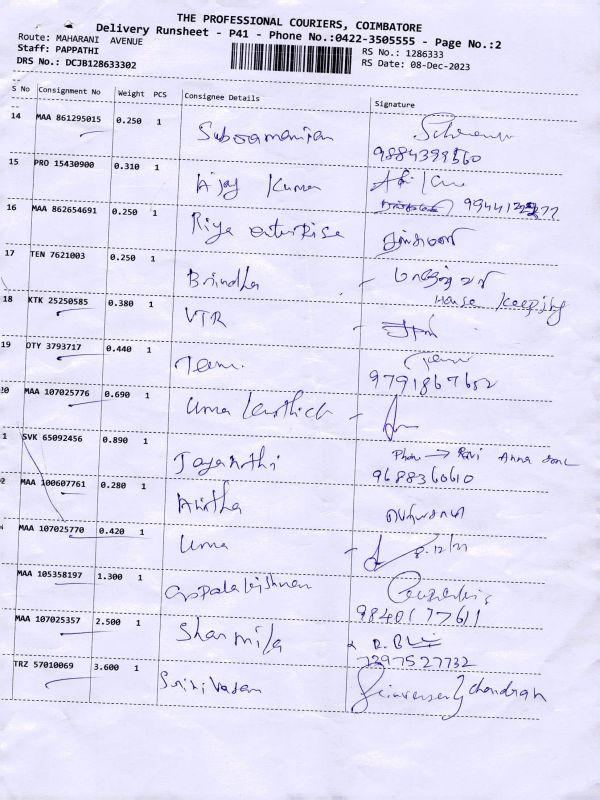 THE PROFESSIONAL COURIERS, COIMBATORE
Delivery Runsheet - P41 - Phone No.:0422-3505555 - Page No.:2
Route: MAHARANI AVENUE
RS No.: 1286333
Staff: PAPPATHI
RS Date: 08-Dec-2023
DRS No.: DCJB128633302
S No Consignment No Weight PCS Consignee Details Signature
14 MAA 861295015 0.250 1 Subramanian
9884399560
15 PRO 15430900 0.310 1 Vijay Kumar
16 MAA 862654691 0.250 1 Riya enterprise
17 TEN 7621003 0.250 1 Brindha
House keeping
18 KTK 25250585 0.380 1 VTR
19 DTY 3793717 0.440 1 Team.
9791867652
20 MAA 107025776 0.690 1 Uma Karthick
1 SVK 65092456 0.890 1 Jayanthi Phon → Ravi Anna
9688360610
2 MAA 100607761 0.280 1 Anitha
MAA 107025770 0.420 1 Uma 8.12/23
MAA 105358197 1.300 1 Gopalakrishnan
9840177611
MAA 107025357 2.500 1 Sharmila
7397527732
TRZ 57010069 3.600 1 Srinivasan chandran